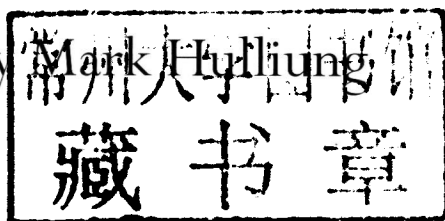 y Mark Hulliung
常州大学图书馆
藏书章